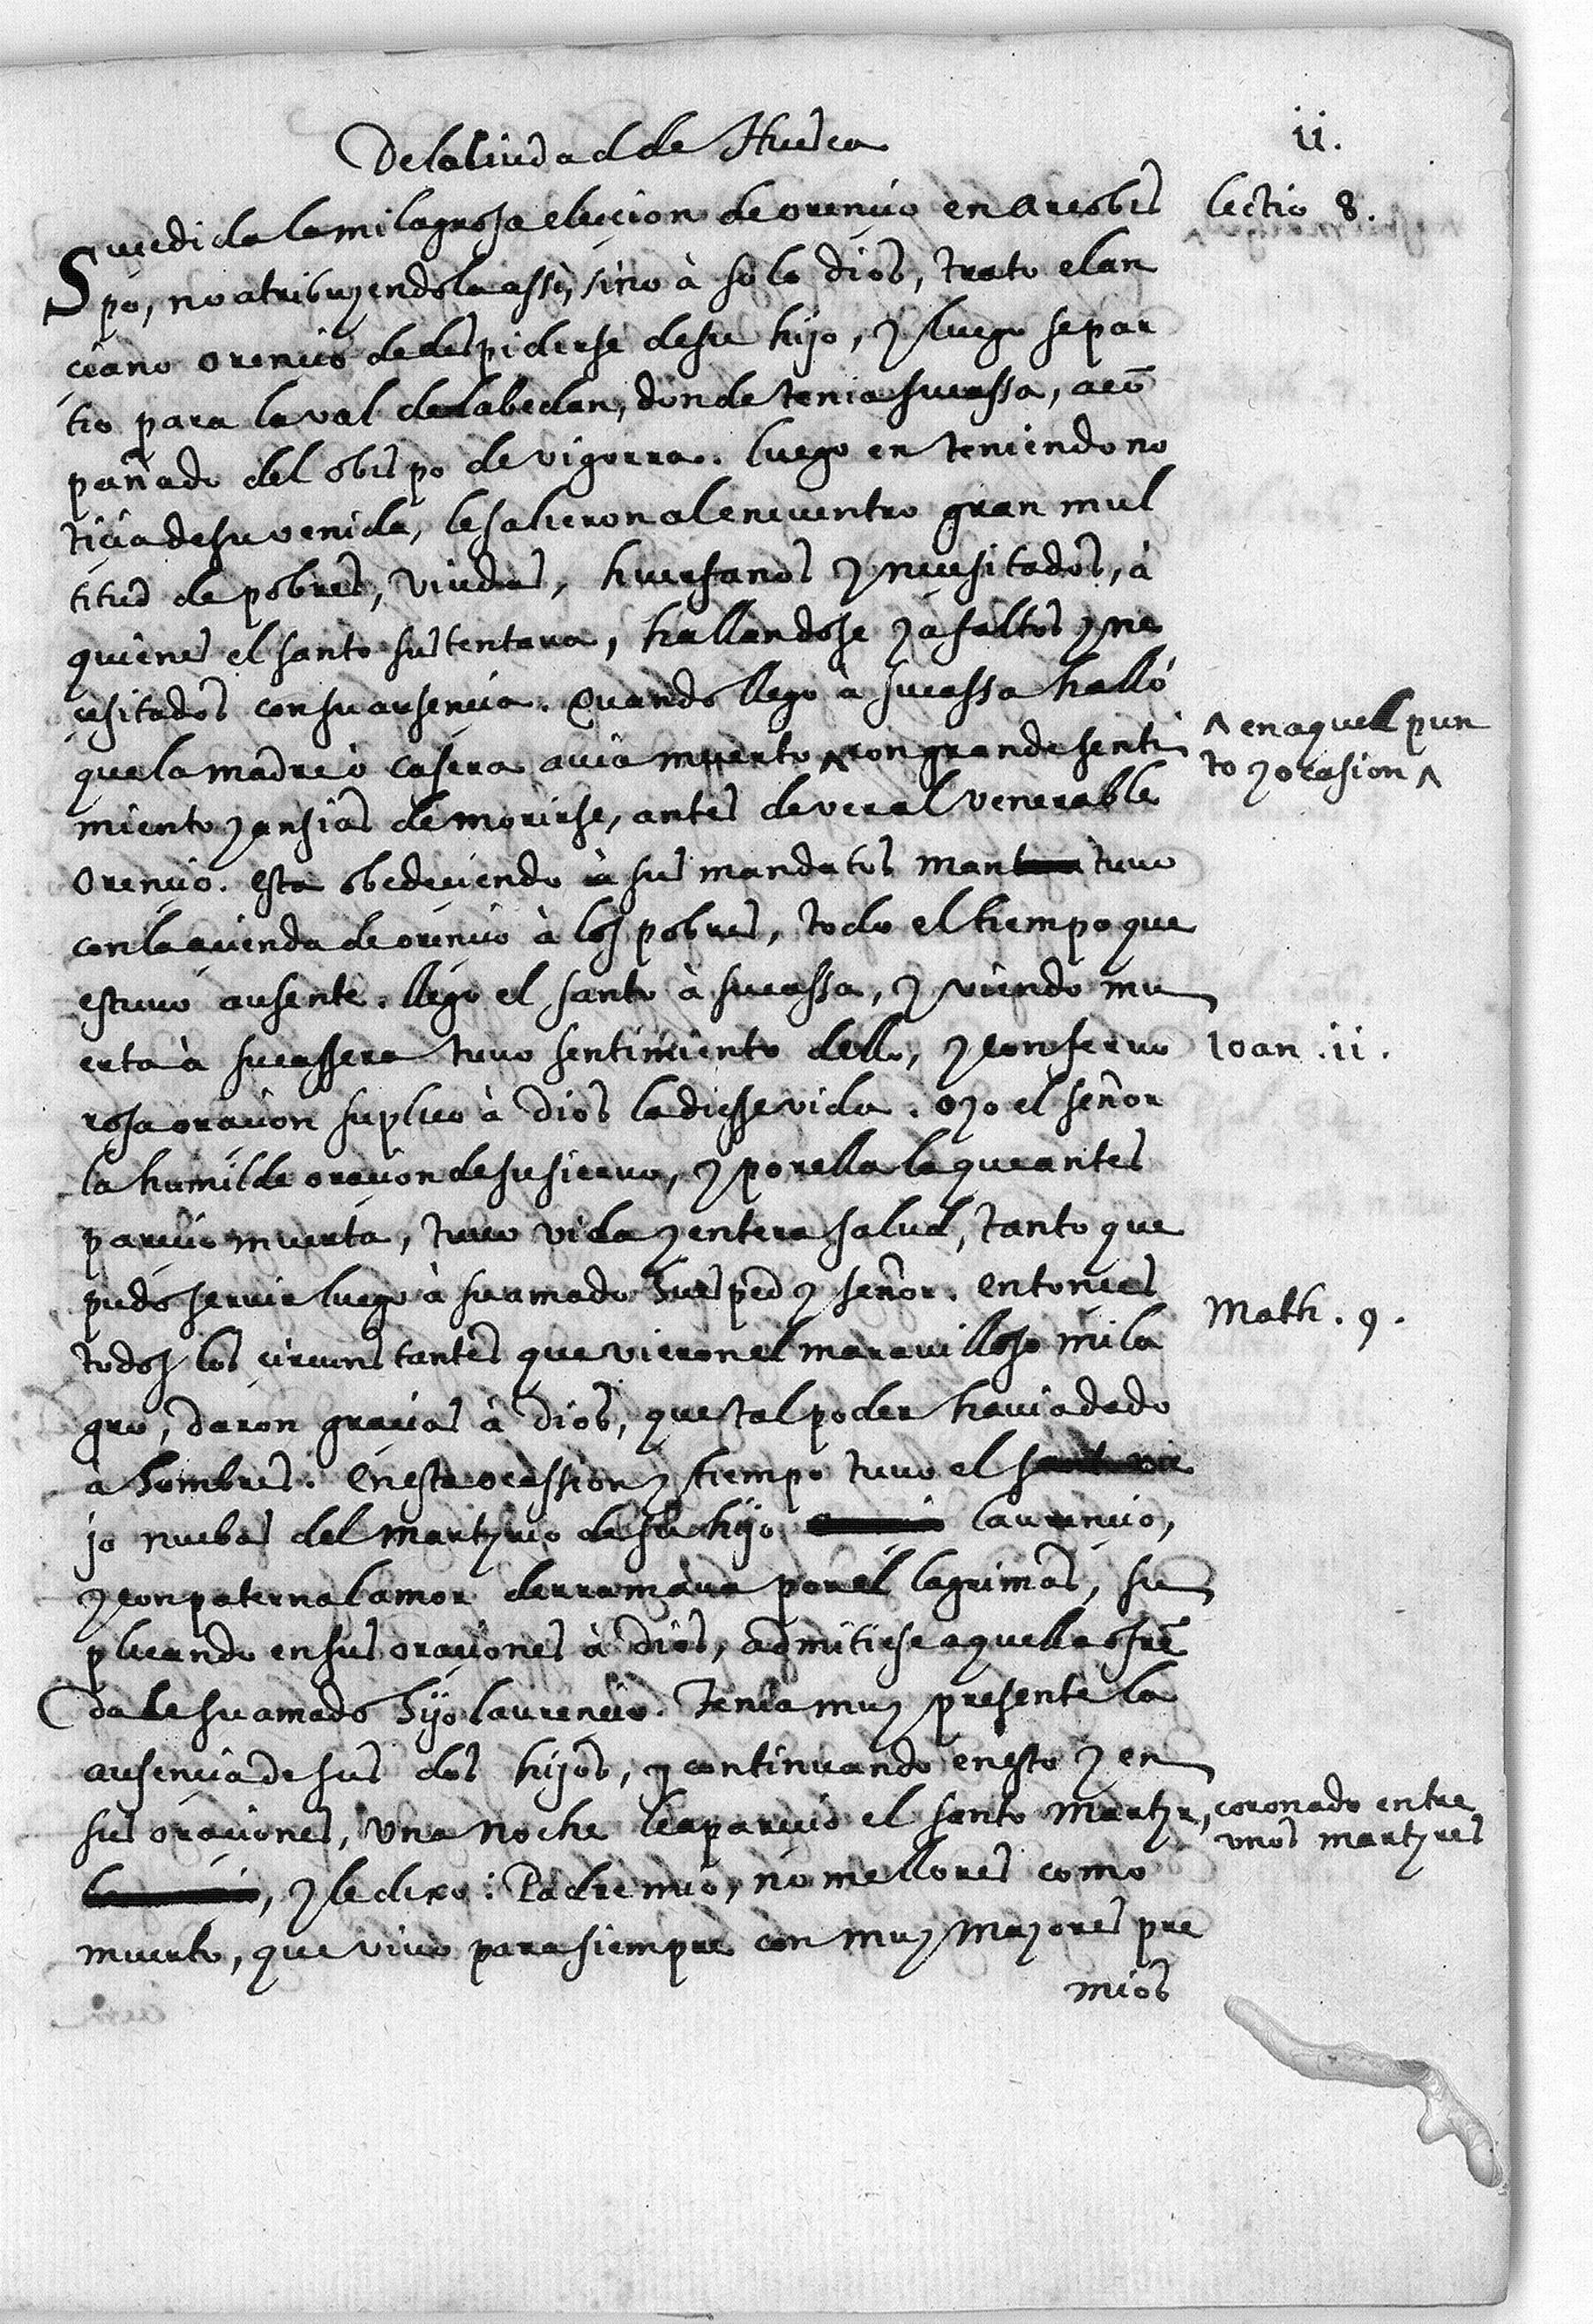 De la ciudad de Huesca
ii.
Sucedida la milagrosa elecçion de orençio en Arcobis
lectio 8.
po, no atribuyendola assi, sino à solo dios, trato el an
çiano orençio de despidirse de su hijo, y luego se par
tio para la val de labedan, donde tenia su cassa, acō
pañado del obispo de vigorra. luego en teniendo no
tiçia de su venida, le salieron al encuentro gran mul
titud de pobres, viudas, huerfanos y neçesitados, à
quienes el santo sustentava, hallandose ya faltos y ne
çesitados con su ausençia. Quando llego à su cassa halló
que la madre ò casera avia muerto ^ con grande senti
^ en aquell pun
to y ocasion ^
miento y ansias de morirse, antes de ver al venerable
Orençio. esta obedeçiendo à sus mandatos man tuvo
con la açienda de orençio à los pobres, todo el tiempo que
estuvo ausente. llego el santo à su cassa, y viendo mu
erta à su cassera tuvo sentimiento dello, y con fervo
Ioan .ii.
rosa oraçion suplico à Dios la diesse vida. oyo el señor
la humilde oraçion de su siervo, y por ella la que antes
pareçio muerta, tuvo vida y entera salud, tanto que
pudo servir luego à su amado huesped y señor. entonçes
Math. 9.
todos los çircunstantes que vieron el maravilloso mila
gro, daron graçias à Dios, que tal poder havia dado
à hombres. En esta ocassion y tiempo tuvo el santo vie
jo nuebas del martyrio de su hijo laurençio,
y con paternal amor derramava por el lagrimas, su
plicando en sus oraçiones à Dios, admitiese aquella ofrē
da de su amado hijo laurençio. Tenia muy presente la
ausençia de sus dos hijos, y continuando en esto y en
sus oraçiones, una noche le apareçio el santo martyr,
coronado entre
unos martyres
, y le dixo: Padre mio, no me llores como
muerto, que vivo para siempre con muy mayores pre
mios